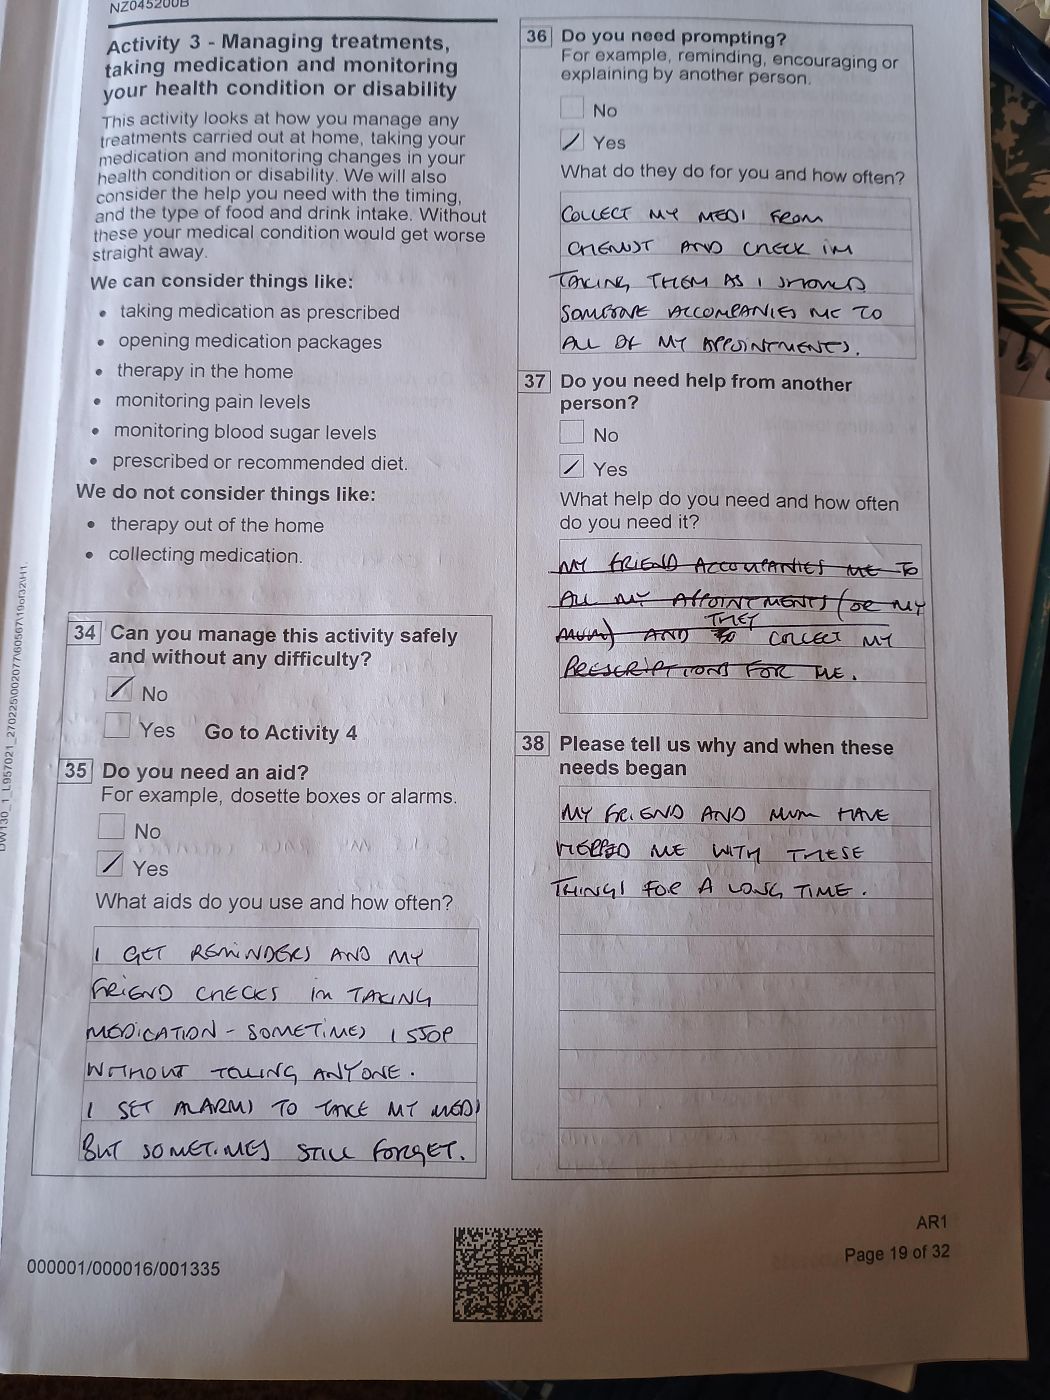 NZ045200B
Activity 3 - Managing treatments,
taking medication and monitoring
your health condition or disability
This activity looks at how you manage any
treatments carried out at home, taking your
medication and monitoring changes in your
health condition or disability. We will also
consider the help you need with the timing,
and the type of food and drink intake. Without
these your medical condition would get worse
straight away.
We can consider things like:
• taking medication as prescribed
• opening medication packages
• therapy in the home
• monitoring pain levels
• monitoring blood sugar levels
• prescribed or recommended diet.
We do not consider things like:
• therapy out of the home
• collecting medication.
34 Can you manage this activity safely
and without any difficulty?
No
Yes Go to Activity 4
35 Do you need an aid?
For example, dosette boxes or alarms.
No
Yes
What aids do you use and how often?
I GET REMINDERS AND MY
FRIEND CHECKS IM TAKING
MEDICATION - SOMETIMES I STOP
WITHOUT TELLING ANYONE.
I SET ALARMS TO TAKE MY MEDS
BUT SOMETIMES STILL FORGET.
36 Do you need prompting?
For example, reminding, encouraging or
explaining by another person.
No
Yes
What do they do for you and how often?
COLLECT MY MEDS FROM
CHEMIST AND CHECK IM
TAKING THEM AS I SHOULD
SOMEONE ACCOMPANIES ME TO
ALL OF MY APPOINTMENTS.
37 Do you need help from another
person?
No
Yes
What help do you need and how often
do you need it?
MY FRIEND ACCOMPANIES ME TO
ALL MY APPOINTMENTS (OR MY
MUM) AND THEY COLLECT MY
PRESCRIPTIONS FOR ME.
38 Please tell us why and when these
needs began
MY FRIEND AND MUM HAVE
HELPED ME WITH THESE
THINGS FOR A LONG TIME.
DW130_1_L957021_270225\002077\60567\19of32\H1.
000001/000016/001335
AR1
Page 19 of 32